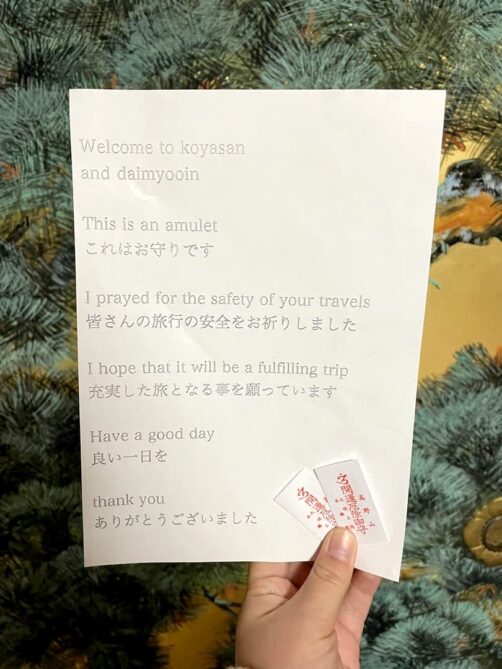 Welcome to koyasan
and daimyooin
This is an amulet
これはお守りです
I prayed for the safety of your travels
皆さんの旅行の安全をお祈りしました
I hope that it will be a fulfilling trip
充実した旅となる事を願っています
Have a good day
良い一日を
thank you
ありがとうございました
高野山
開運厄除御守